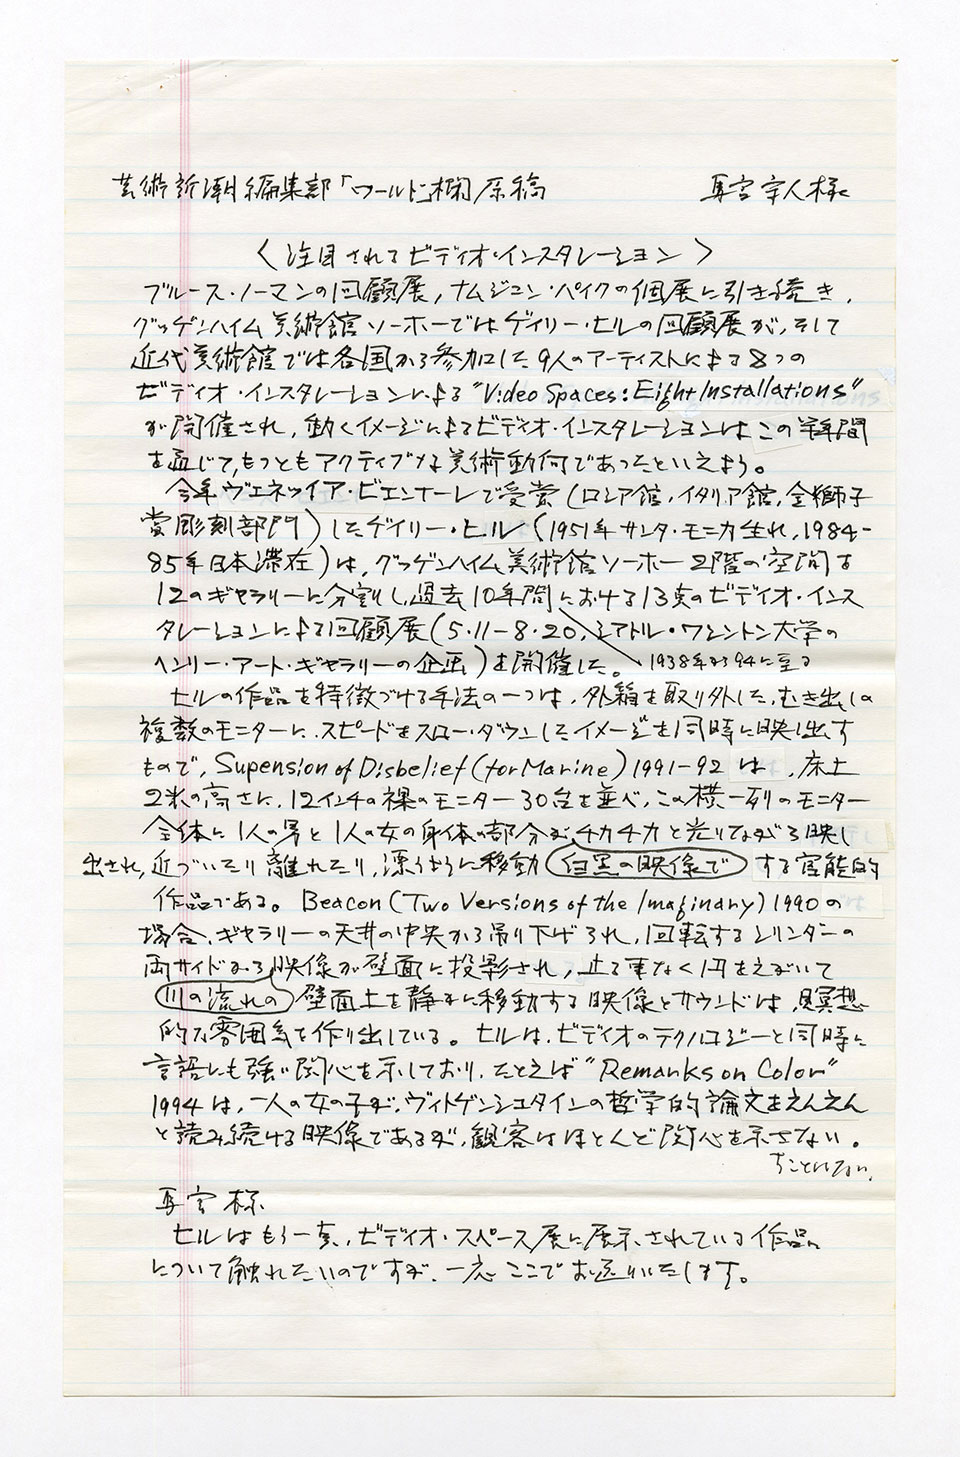 芸術新潮編集部「ワールド」欄原稿　　馬宮宗人様
〈注目されてビディオ・インスタレーション〉
ブルース・ノーマンの回顧展，ナムジュン・パイクの個展に引き続き，
グッゲンハイム美術館ソーホーではゲイリー・ヒルの回顧展が，そして
近代美術館では各国から参加した9人のアーティストによる8つの
ビディオ・インスタレーションによる"Video Spaces: Eight Installations"
が開催され，動くイメージによるビディオ・インスタレーションは，この半年間
を通じて，もっともアクティブな美術動向であったといえよう。
今年ヴェネツィア・ビエンナーレで受賞（ロシア館，イタリア館，金獅子
賞彫刻部門）したゲイリー・ヒル（1951年サンタ・モニカ生れ，1984-
85年日本滞在）は，グッゲンハイム美術館ソーホー2階の空間を
12のギャラリーに分割し，過去10年間における13点のビディオ・インス
タレーションによる回顧展（5・11－8・20，シアトル・ワシントン大学の
ヘンリー・アート・ギャラリーの企画）を開催した。 1938年から94に至る
ヒルの作品を特徴づける手法の一つは，外箱を取り外した，むき出しの
複数のモニターに，スピードをスロー・ダウンしたイメージを同時に映し出す
もので，Supension of Disbelief (for Marine) 1991-92 は，床上
2米の高さに，12インチの裸のモニター30台を並べ，この横一列のモニター
全体に1人の男と1人の女の身体の部分が，チカチカと光りながら映し
出され，近づいたり離れたり，漂うように移動 白黒の映像で する官能的
作品である。Beacon (Two Versions of the Imaginary) 1990の
場合，ギャラリーの天井の中央から吊り下げられ，回転するシリンダーの
両サイドから映像が壁面に投影され，止る事なく円をえがいて
川の流れの 壁面上を静かに移動する映像とサウンドは，瞑想
的な雰囲気を作り出している。ヒルは，ビディオのテクノロジーと同時に
言語にも強い関心を示しており，たとえば"Remarks on Color"
1994は，一人の女の子が，ヴィトゲンシュタインの哲学的論文をえんえん
と読み続ける映像であるが，観客はほとんど関心を示さない。
馬宮様
ヒルはもう一点，ビディオ・スペース展に展示されている作品
について触れたいのですが，一応ここでお送りいたします。